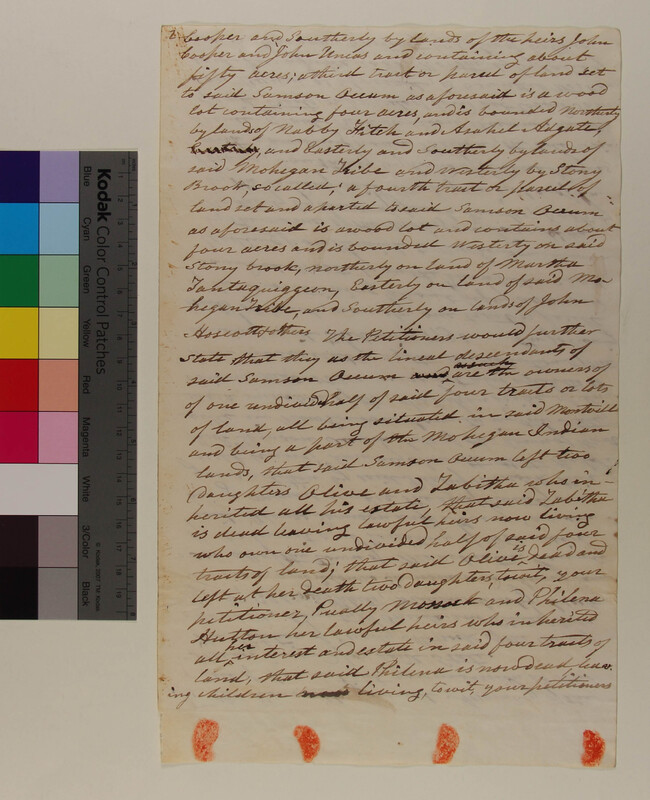 Cooper and Southerly by lands of the heirs John
Cooper and John Uncas and containing about
fifty acres; a third tract or parcel of land set
to said Samson Occum as aforesaid is a wood
lot containing four acres, and is bounded Northerly
by lands of Nabby Fitch and Asahel Adgate,
and Easterly and Southerly by lands of
said Mohegan Tribe and westerly by Stony
Brook, so called; a fourth tract or parcel of
land set and aparted to said Samson Occum
as aforesaid is a wood lot and contains about
four acres and is bounded Westerly on said
Stony brook, northerly on land of Martha
Tantaquiggeon, Easterly on land of said Mo-
hegan Tribe, and Southerly on lands of John
Hoscott & others The Petitioners would further
state that they as the lineal descendants of
said Samson Occum and as such are the owners of
of one undivided half of said four tracts or lots
of land, all being situated in said Montville
and being a part of the Mohegan Indian
lands, that said Samson Occum left two
daughters Olive and Tabitha who in-
herited all his estate, that said Tabitha
is dead leaving lawful heirs now living
who own one undivided half of said four
tracts of land; that said Olive is dead and
left at her death two daughters towit, your
petitioner, Pually Mossock and Philena
Hutton her lawful heirs who inherited
all her interest and estate in said four tracts of
land, that said Philena is now dead, leav-
ing children now living, towit, your petitioners
Kodak Color Control Patches
Blue
Cyan
Green
Yellow
Red
Magenta
White
3/Color
Black